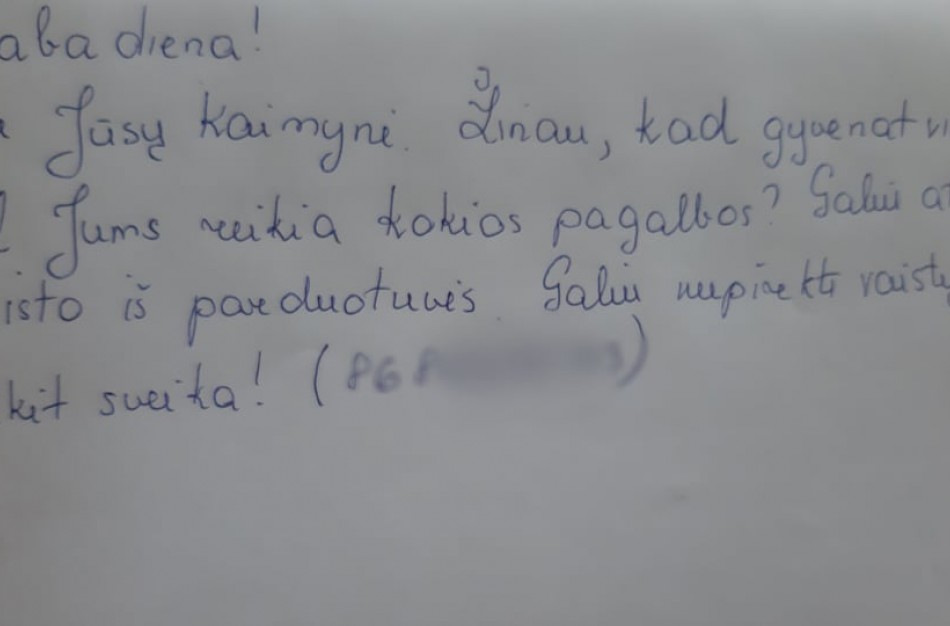 aba diena!
Jūsų kaimynė. Žinau, kad gyvenat vi
Jums reikia kokios pagalbos? Galiu at
isto iš parduotuvės. Galiu nupirkti vaistų
kit sveika! (868